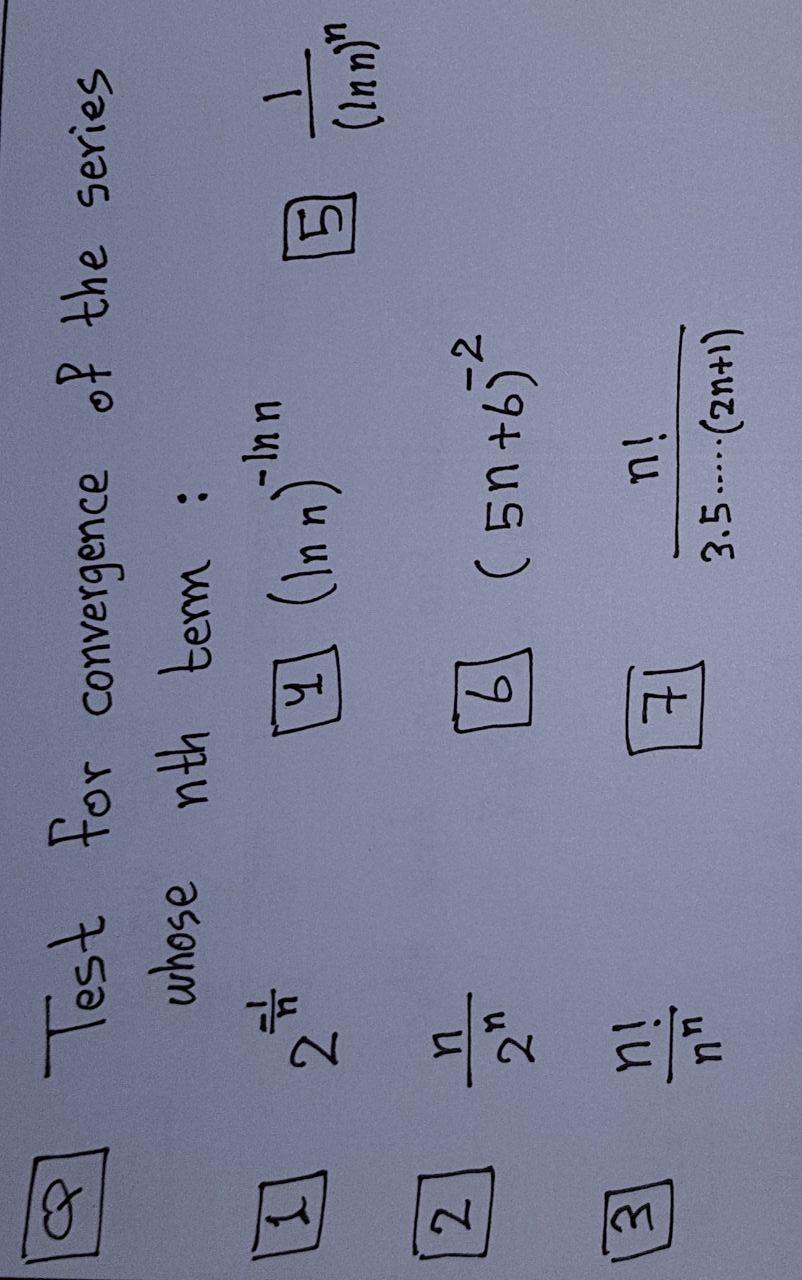 Q Test for convergence of the series
whose nth term :
1 2^(-1/n) 4 (ln n)^(-ln n) 5 1/(ln n)^n
2 n/2^n 6 (5n+6)^(-2)
3 n!/n^n 7 n!/(3.5.....(2n+1))